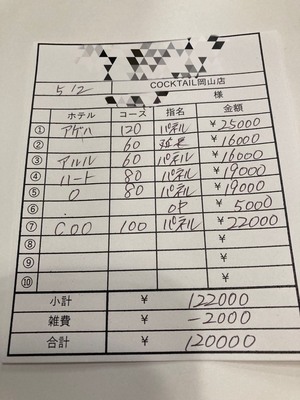 COCKTAIL岡山店
5/2 様
ホテル コース 指名 金額
① アゲハ 120 パネル ¥25000
② 60 延長 ¥16000
③ アルル 60 パネル ¥16000
④ ハート 80 パネル ¥19000
⑤ O 80 パネル ¥19000
⑥ OP ¥5000
⑦ COO 100 パネル ¥22000
⑧ ¥
⑨ ¥
⑩ ¥
小計 ¥ 122000
雑費 ¥ -2000
合計 ¥ 120000